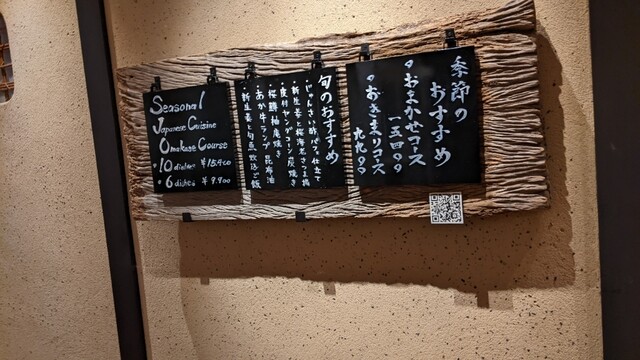 季節の
おすすめ
おまかせコース
一五四〇〇
おきまりコース
九九〇〇
旬のおすすめ
・じゅんさい酢 パフェ仕立て
・新生姜と桜海老さつま揚
・皮付ヤングコーン炭焼き
・桜鱒柚庵焼き
・あか牛ランプ 昆布油
Seasonal
Japanese Cuisine
Omakase Course
・10 dishes ¥15,400
・6 dishes ¥9,900